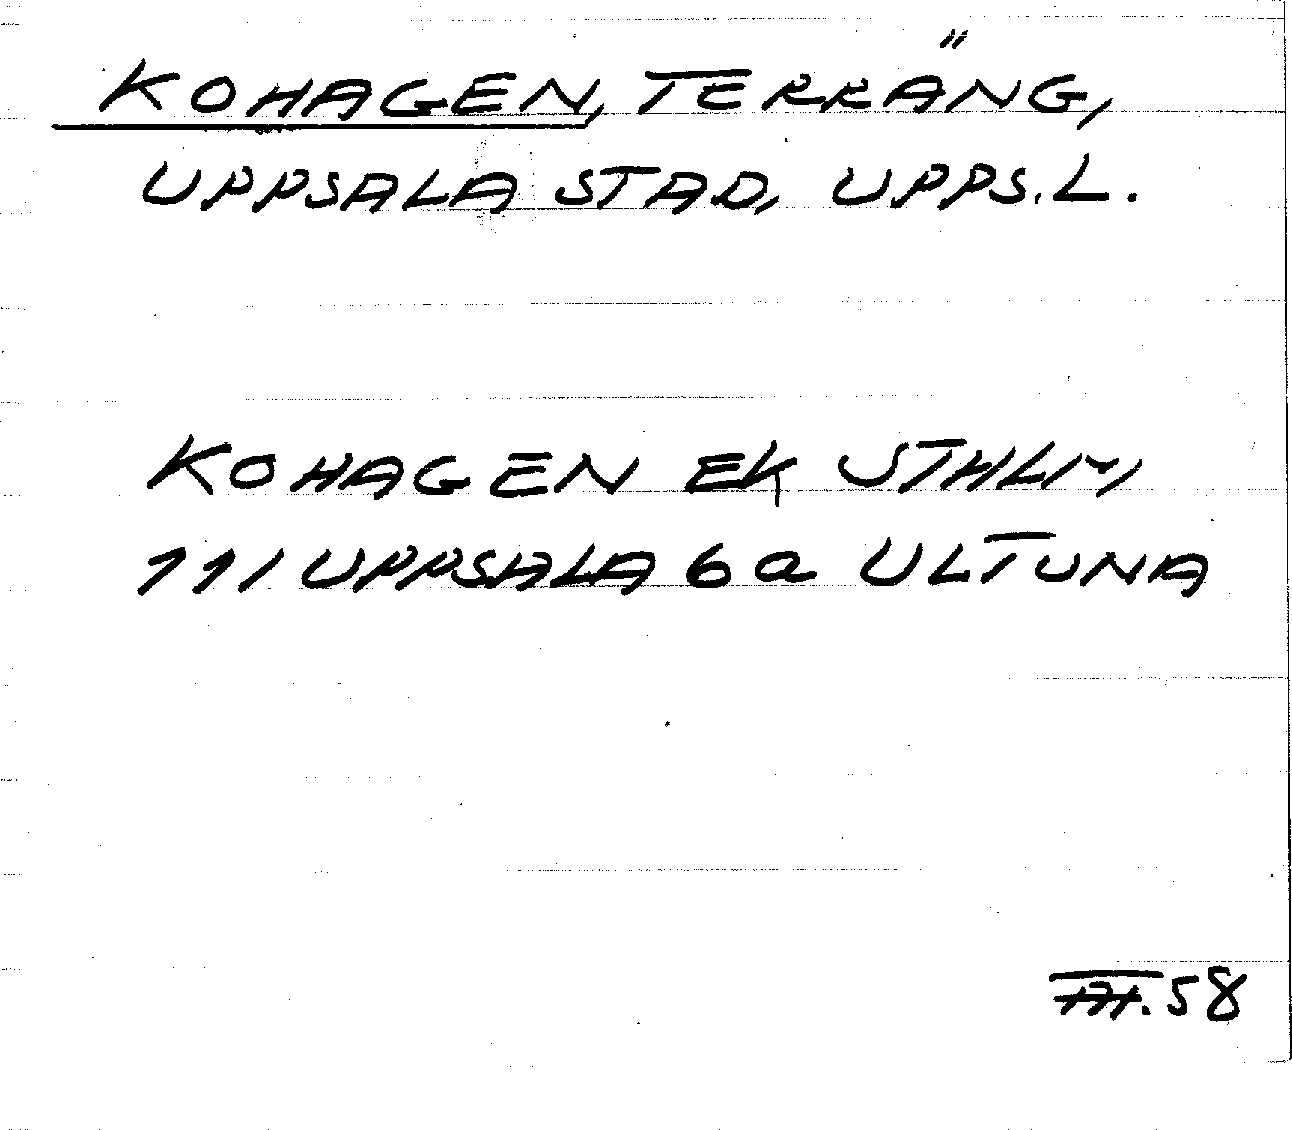 KOHAGEN, TERRÄNG,
UPPSALA STAD, UPPS.L.
KOHAGEN EK STHLM,
11I UPPSALA 6a ULTUNA
58